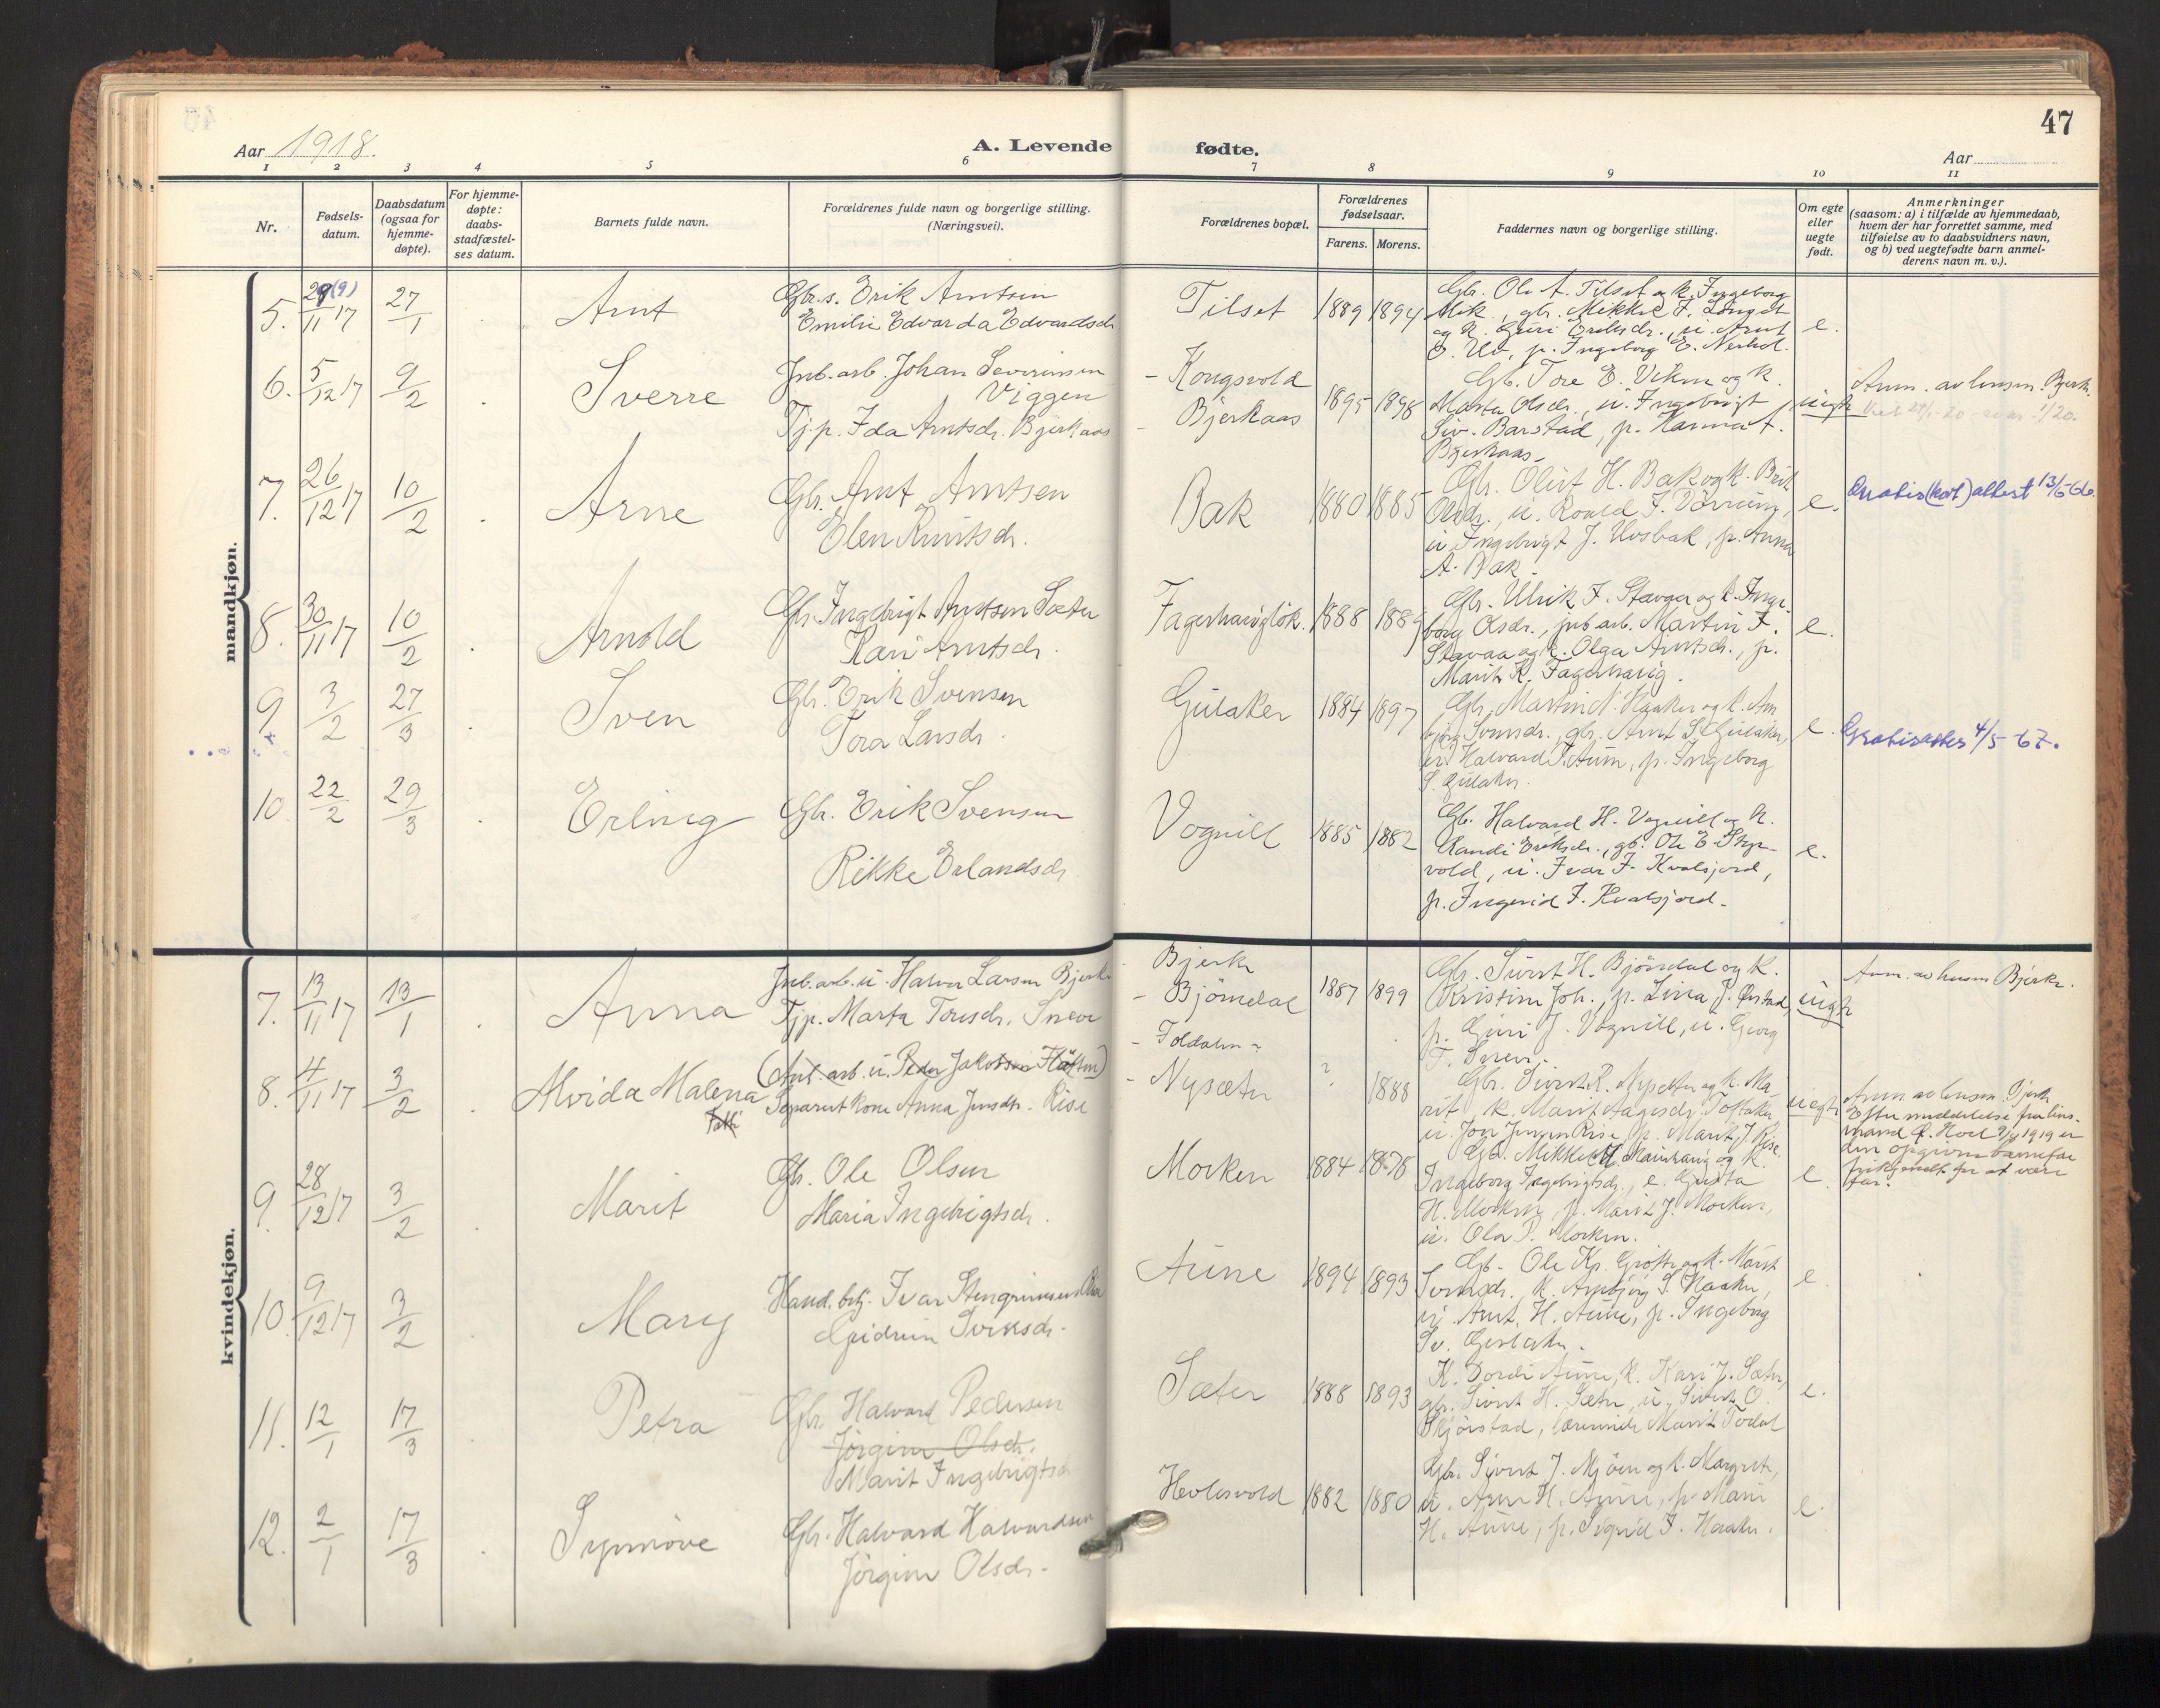 47
Aar 1918.
A. Levende
fødte.
Aar
1 2 3 4 5 6 7 8 9 10 11
Nr.
Fødsels-
datum.
Daabsdatum
(ogsaa for
hjemme-
døpte).
For hjemme-
døpte:
daabs-
stadfæstel-
ses datum.
Barnets fulde navn.
Forældrenes fulde navn og borgerlige stilling.
(Næringsvei).
Forældrenes bopæl.
Forældrenes
fødselsaar.
Farens. Morens.
Faddernes navn og borgerlige stilling.
Om egte
eller
uegte
født.
Anmerkninger
(saasom: a) i tilfælde av hjemmedaab,
hvem der har forrettet samme, med
tilføielse av to daabsvidners navn,
og b) ved uegtefødte barn anmel-
derens navn m. v.).
mandkjøn.
5. 11 17 27/1 Arnt
Gbr.s. Erik Arntsen
Emilie Edvarda Edvardsdr.
Tilset 1889 1894
Gbr. Ole A. Tilset og k. Ingeborg
e.
6. 5/12 17 9/2 Sverre
Jnb.arb. Johan Severinsen
Viggen
Tj.p. Ida Arntsdr. Bjerkaas
- Kongsvold
- Bjerkaas
1895 1898
Marta Olsdr., u. Ingebrigt
Siv. Barstad, p. Hanna A.
Bjerkaas.
uegte
Anm. av lensm. Bjerke.
7. 26/12 17 10/2 Arne
Gbr. Arnt Arntsen
Elen Knutsdr.
Bak 1880 1885
Gbr. Oluf H. Bak og k. Brit
u. Ingebrigt J. Uvsbak, p. Anna
A. Bak.
e.
Gratis (kot) attest 13/5-66.
8. 30/11 17 10/2 Arnold
Gbr. Ingebrigt Arntsen Sæter
Kari Arntsdr.
Fagerhaugløk. 1888 188
borg Olsdr., jnb.arb. Martin F.
Stavaa og k. Olga Arntsdr., p.
Marit K. Fagerhaug.
e.
9 3/2 27/3 Sven
Gbr. Erik Svensen
Tora Larsdr.
Gulaker 1884 1897
Gbr. Martin N. Haaker og k. Arn
bjørg Svensdr., gbr. Arnt S. Gulaker,
u. Halvard T. Aune, p. Ingeborg
S. Gulaker.
e.
Gratisattes 4/5-67.
10 22/2 29/3 Erling
Gbr. Erik Svensen
Rikke Erlandsdr.
Vognill 1885 1882
Gbr. Halvard H. Vognill og k.
Randi Eriksdr., gb. Ole E. Steg-
vold, u. Ivar F. Kvalsjord,
p. Ingerid F. Kvalsjord.
e.
kvindekjøn.
7. 13/11 17 13/1 Anna
Jnb.arb. u. Halvor Larsen Bjerke
Tjp. Marta Toresdr. Sneve
Bjerke
- Bjørndal
1887 1899
Gbr. Sivert H. Bjørndal og k.
Kristine Joh., p. Lina J. Ørstad,
p. Guri J. Vognill, u. Georg
T. Sneve.
uegte
Anm. av lensm Bjerke.
8. 4/11 17 3/2 Alvida Malena
(Anl. arb. u. Peder Jakobsen Flåten)
Separert kone Anna Jensdr. Rise
- Nysæter ? 1888
Gbr. Sivert R. Nysæter og k. Ma
rit, k. Marit Aagesdr. Toftaker
u. Jon Jensen Rise, p. Marit J. Rise.
uegte
Anm av lensm. Bjerke
Efter meddelelse fra lens
mand O. Hoel 1919 er
den opgivne barnefar
frikjendt for at være
far.
9. 28/12 17 3/2 Marit
Gbr. Ole Olsen
Maria Ingebrigtsdr.
Morken 1884 1878
Ingeborg Ingebrigtsdr., e. Gjerta
H. Morken, p. Marit J. Morken,
u. Ola P. Morken.
e.
10. 9/12 17 3/2 Mary
Hand. betj. Ivar Stengrimsen
Gudrun Sivertsdr.
Aune 1894 1893
Svensdr., k. Arnbjørg S. Haaker,
u. Arnt. H. Aune, p. Ingeborg
Sv. Gulaker.
e.
11. 12/1 17/3 Petra
Gbr. Halvard Pedersen
Jørgine Olsdr.
Marit Ingebrigtsdr
Sæter 1888 1893
K. Dordi Aune, k. Kari J. Sæter,
gbr. Sivert H. Sæter, u. Sivert O.
Skjørstad, lærerinde Marit Todal
e.
12. 2/1 17/3 Synnøve
Gbr. Halvard Halvardsen
Jørgine Olsdr.
Hevlesvold 1882 1880
Gbr. Sivert J. Mjøen og k. Margrete,
u. Arne H. Aune, p. Marie
H. Aune, p. Sigrid F. Haaker.
e.